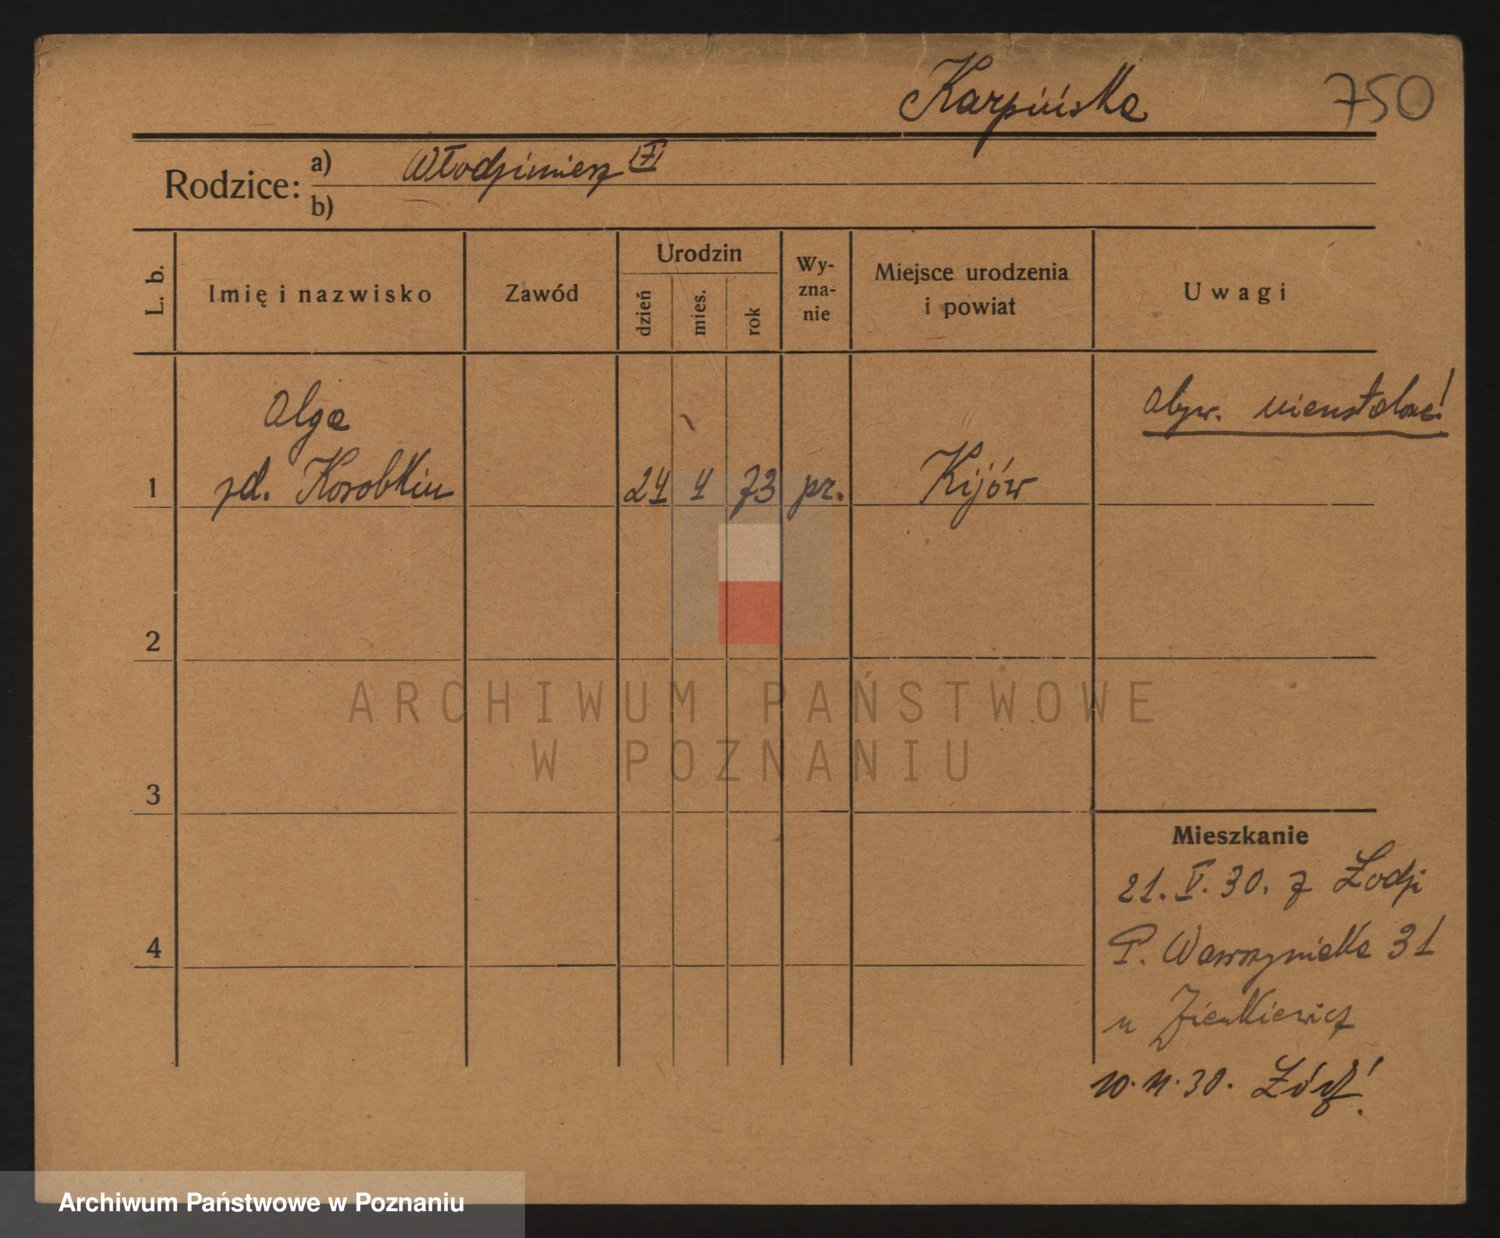 Karpińska 750
Rodzice: a) Włodzimierz
b)
L. b. Imię i nazwisko Zawód Urodzin dzień mies. rok Wy-zna-nie Miejsce urodzenia i powiat Uwagi
Olga obyw. nieustalone!
1 zd. Korobkin 24 4 73 pr. Kijów
2
ARCHIWUM PAŃSTWOWE
W POZNANIU
3
Mieszkanie
21. V. 30. z Łodzi
4 P. Wawrzyniaka 31
u Zienkiewicz
10. 11. 30. Łódź!
Archiwum Państwowe w Poznaniu